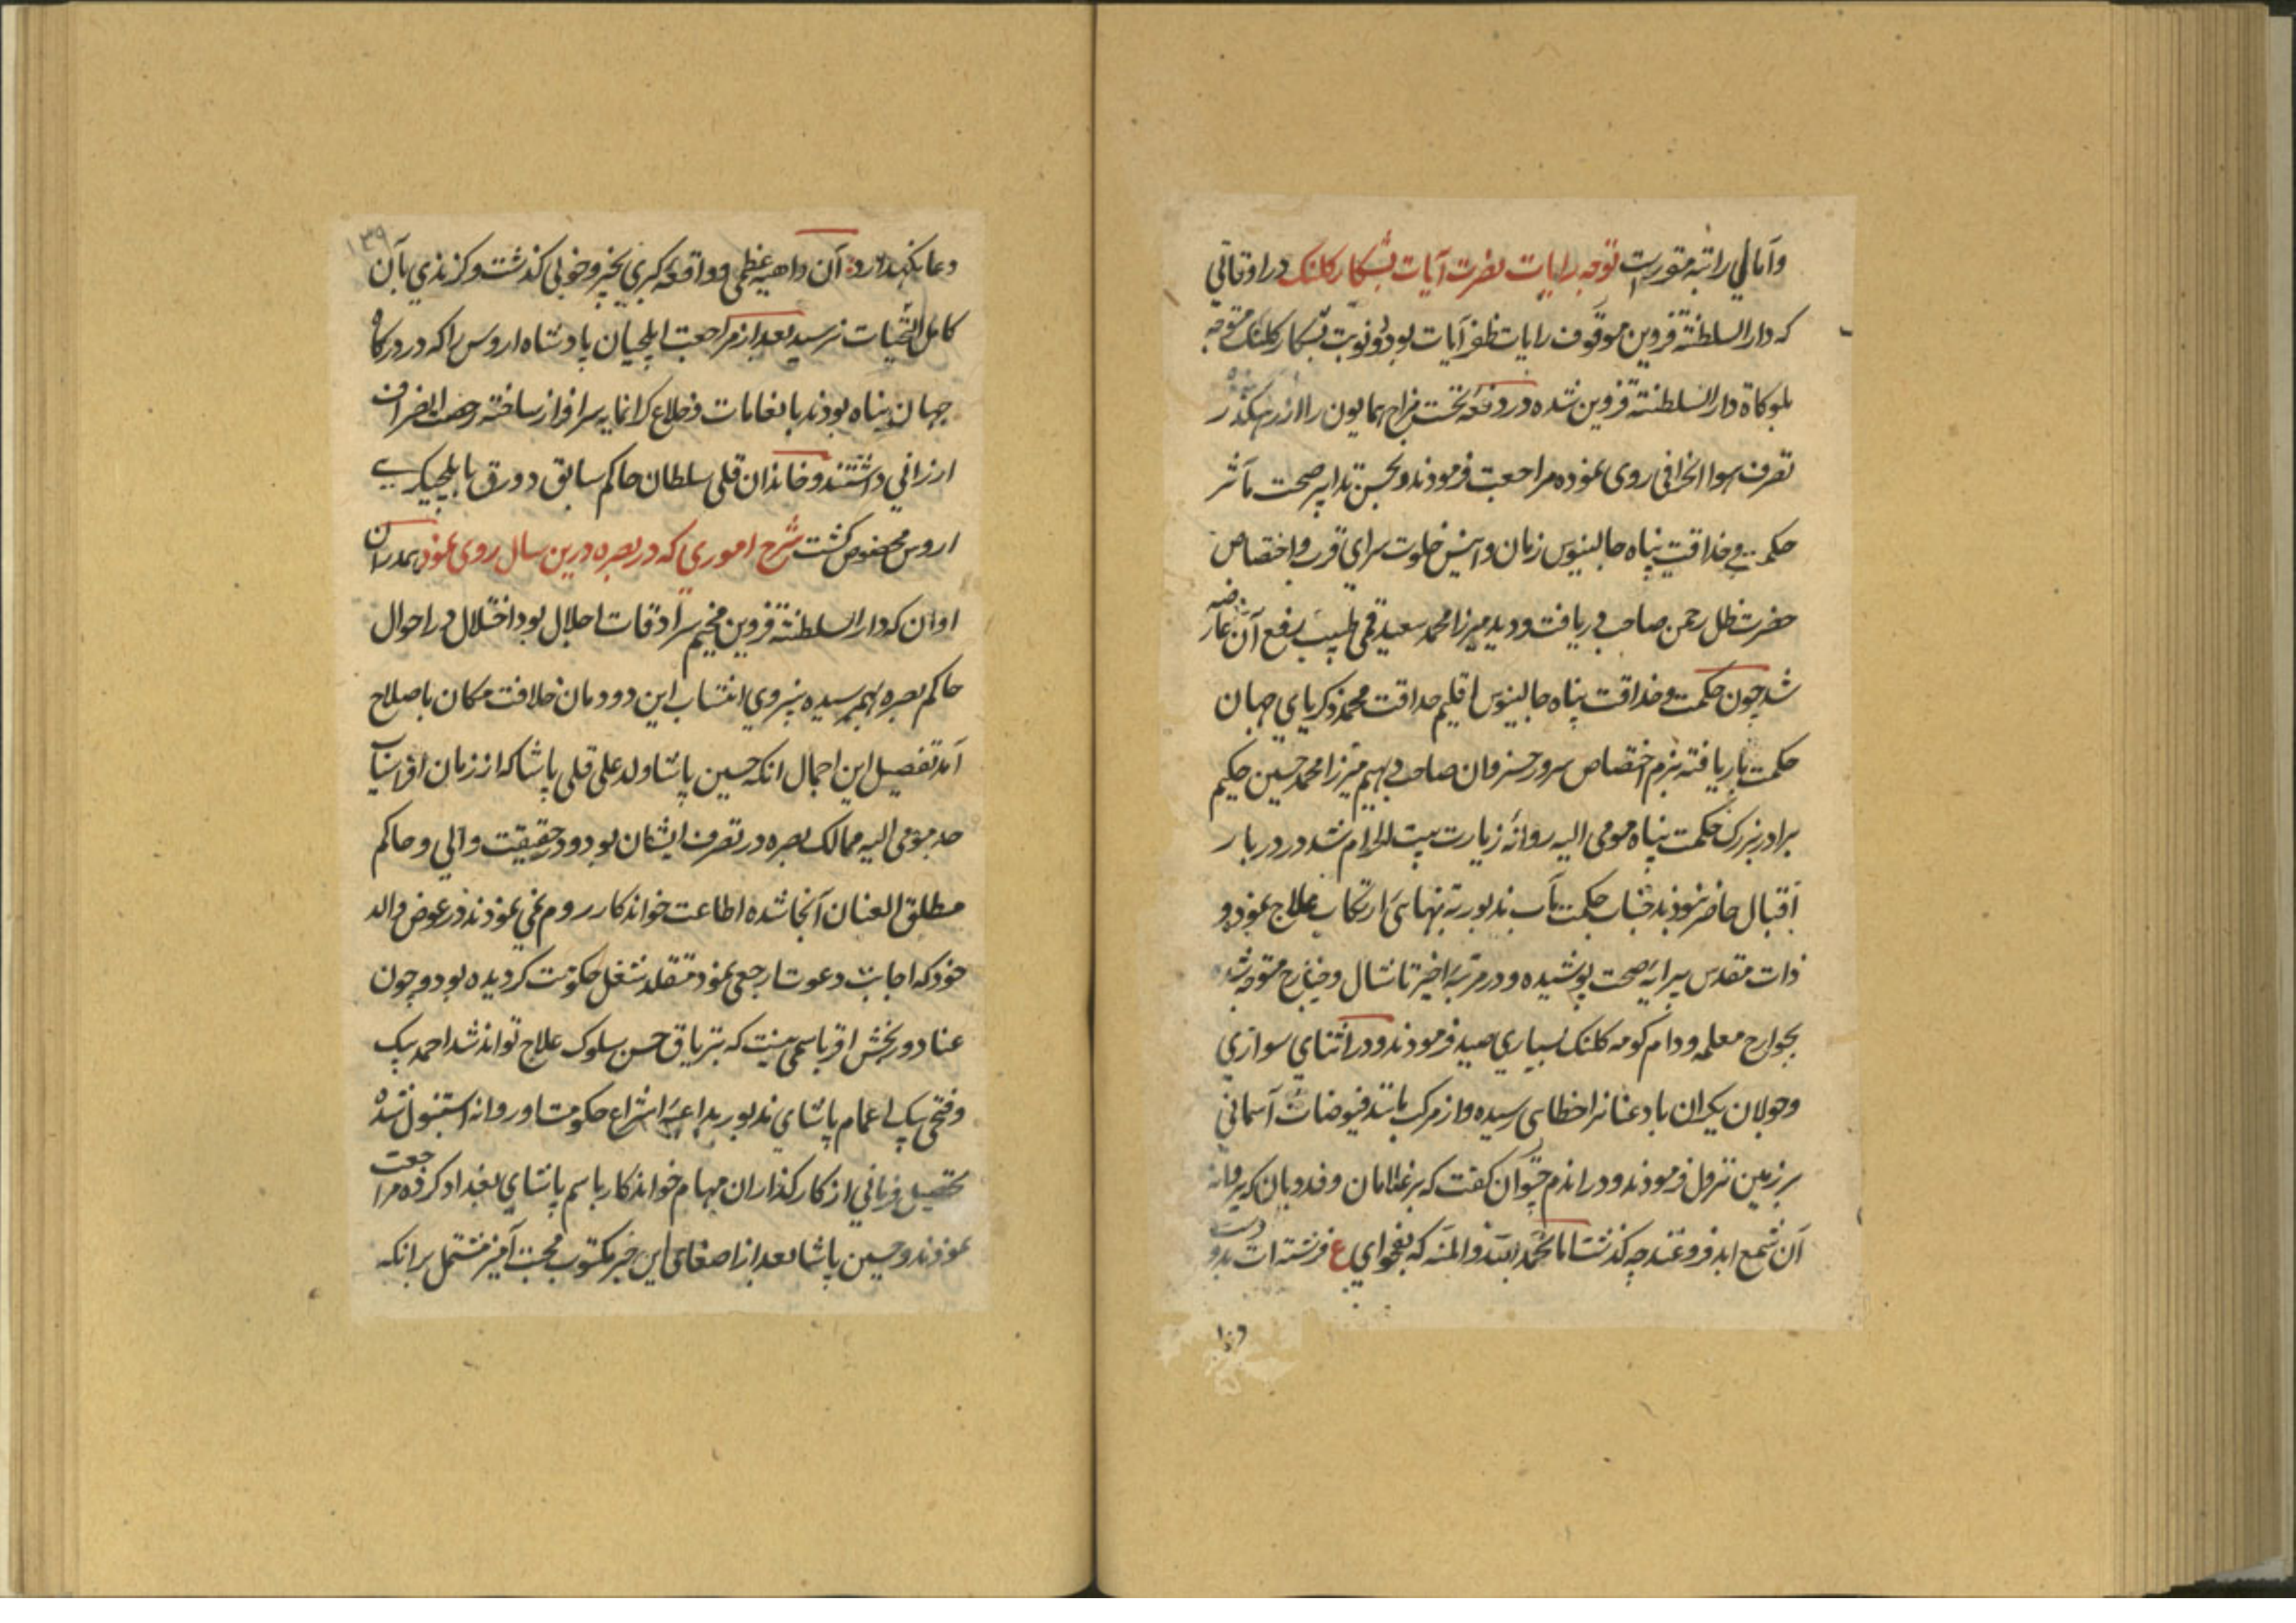 وآمالي راتبه متورست توجه رایات نصرت آیات بشکار کلنک در اوقاتی
که دار السلطنة قزوین موقوف رایات ظفر آیات بود دو نوبت بشکار کلنک متوجه
بلوکاة دار السلطنته قزوین شده در دفعه نخست مزاج همایون را از رهکذر
تصرف هوا انحرافی روی نموده مراجعت فرمودند و بحسن تدابیر صحت مآثر
حکمت و حذاقت پناه جالینوس زمان و انیس خلوت سرای قرب و اختصاص
حضرت ظل رحمن صاحب دریافت و دید میرزا محمد سعید قمی طبیب رفع آن عارضه
شد چون حکمت و حذاقت پناه جالینوس اقلیم حداقت محمد زکریای جهان
حکمت بار یافته بزم اختصاص سرور خسروان صاحب دیهیم میرزا محمد حسین حکیم
برادر بزرک حکمت پناه مومی الیه روانهٔ زیارت بیت الحرام شد در دربار
اقبال حاضر نبودند جناب حکمت مآب مذبور به تنهائی ارتکاب علاج نمود و
ذات مقدس پیرایهٔ صحت پوشیده و در مرتبهٔ اخیر تا نشال و خیارج متوجه شده
بجوارح معلمه و دام کومه کلنک بسیاری صید فرمودند و در اثنای سواری
وجولان یکران باد عنانرا خطای رسیده و از مرکب مانند فیوضات آسمانی
بر زمین نزول فرمودند و در اندم چتوان کفت که بر غلامان و فدویان که پروانهٔ
آن شمع ابد فروغند چه کذشت اما بحمد الله والمنه که بفحوای ع فرشته ات بدو دست
دعا نکهدارد آن داهیهٔ عظمی و واقعهٔ کبری بخیر و خوبی کذشت و کزندی بآن
کامل التحیات نرسید بعد از مراجعت ایلچیان پادشاه اروس را که در درکاه
جهان پناه بودند بانعامات و خلاع کرانمایه سرافراز ساخته رخصت انصراف
ارزانی داشتند و خاندان قلی سلطان حاکم سابق دورق بایلچیکری
اروس مخصوص کشت شرح اموری که در بصره درین سال روی نمود هم در آن
اوان که دار السلطنة قزوین مخیم سرادقات اجلال بود اختلال در احوال
حاکم بصره بهم رسیده بنیروی انتساب این دودمان خلافت مکان باصلاح
آمد تفصیل این اجمال انکه حسین پاشا ولد علی قلی پاشا که از زمان افراسیاب
جد مومی الیه ممالک بصره در تصرف ایشان بود و در حقیقت والی و حاکم
مطلق العنان آنجا شده اطاعت خواندکار روم نمی نمودند در عوض والد
خود که اجابت دعوت ارجعی نمود متقلد شغل حکومت کردیده بود و چون
عناد و رنجش اقربا سمی نیست که بتریاق حسن سلوک علاج تواند شد احمد بیک
وفتحی بیک اعمام پاشای مذبور بداعیهٔ انتزاع حکومت او روانه استنبول شده
تحصیل فرمانی از کارکذاران مهام خواندکار باسم پاشای بغداد کرده مراجعت
نمودند و حسین پاشا بعد از اصغای این خبر مکتوب محبت آمیز مشتمل بر انکه